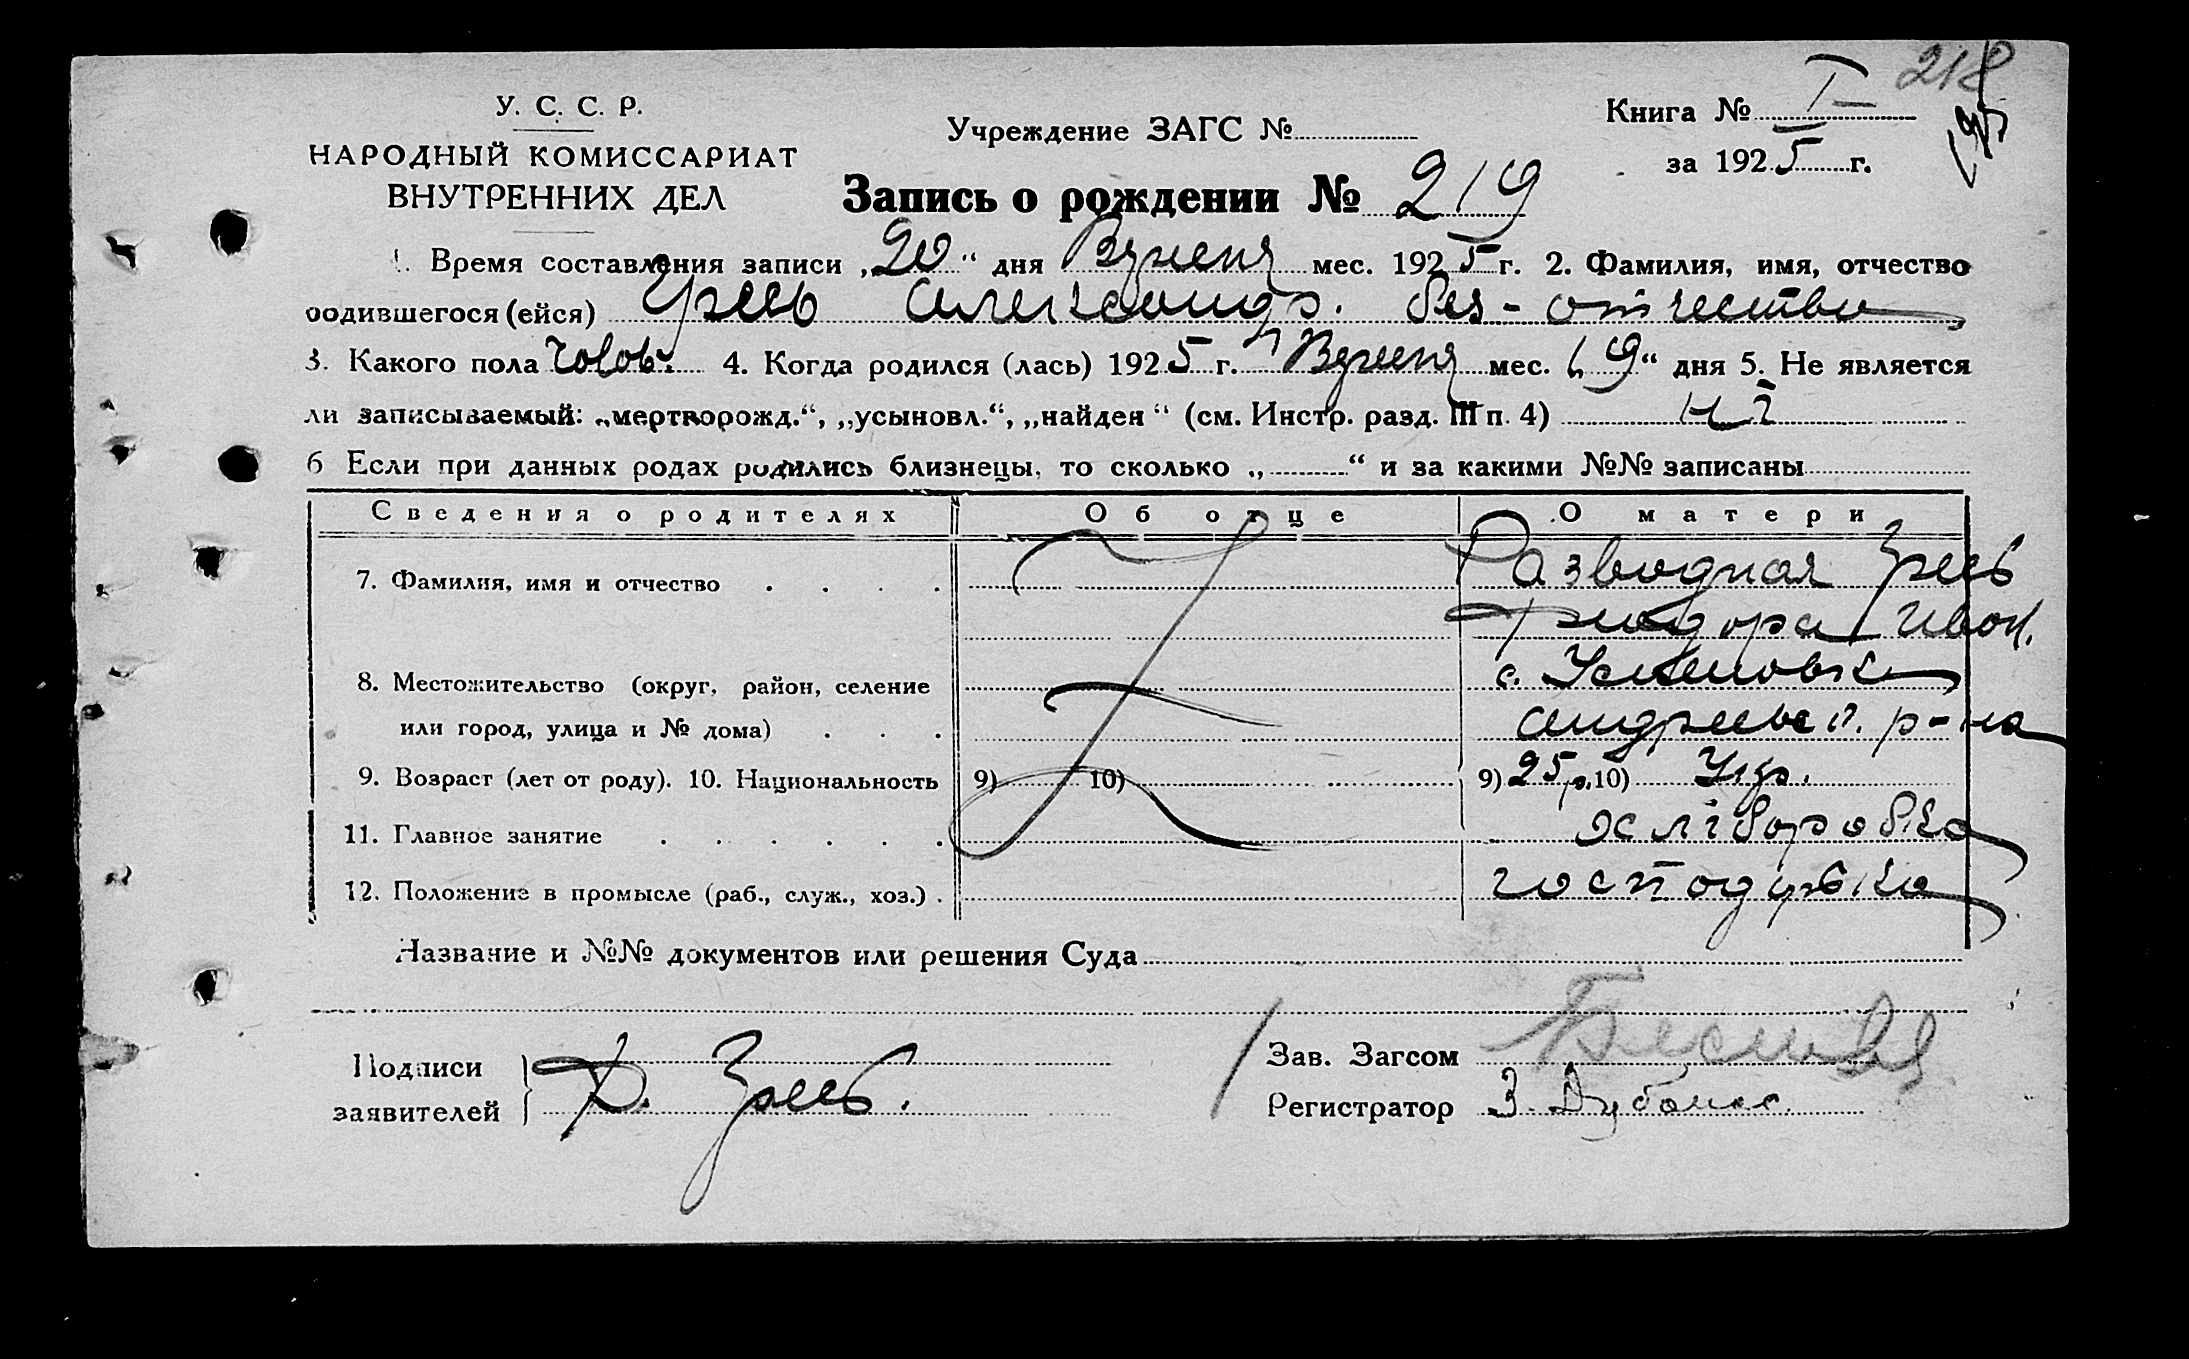 218
У. С. С. Р.
Учреждение ЗАГС №
Книга № I
НАРОДНЫЙ КОМИССАРИАТ
за 1925 г.
ВНУТРЕННИХ ДЕЛ
Запись о рождении № 219
1. Время составления записи „20“ дня мес. 1925 г. 2. Фамилия, имя, отчество
родившегося (ейся) Александр. без-отчества
3. Какого пола чолов. 4. Когда родился (лась) 1925 г. мес. „19“ дня 5. Не является
ли записываемый: „мертворожд.“, „усыновл.“, „найден“ (см. Инстр. разд. III п. 4) ні
6 Если при данных родах родились близнецы, то сколько „ “ и за какими №№ записаны
Сведения о родителях Об отце О матери
7. Фамилия, имя и отчество Разводная
Иван.
8. Местожительство (округ, район, селение с.
или город, улица и № дома) Андреевс. р-на
9. Возраст (лет от роду). 10. Национальность 9) 10) 9) 25 р. 10) Укр.
11. Главное занятие хліборобка
12. Положение в промысле (раб., служ., хоз.) господарка
Название и №№ документов или решения Суда
Подписи
заявителей
Зав. Загсом
Регистратор З.